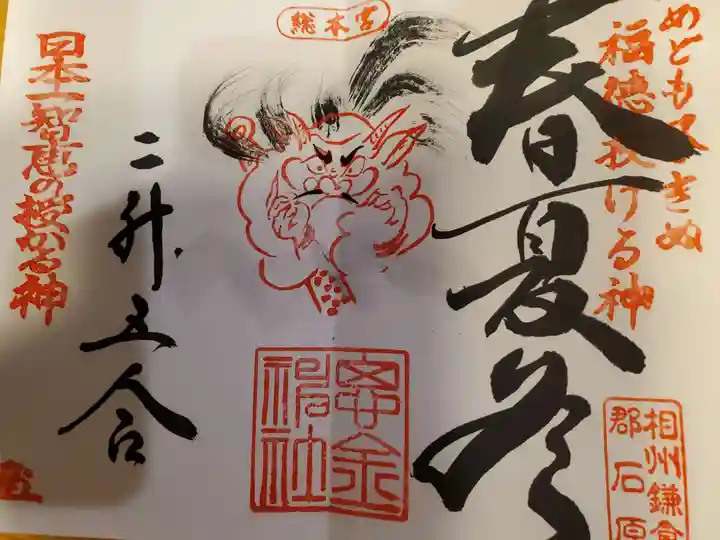 めども尽きぬ
福徳授ける神
春夏冬
総本宮
二升五合
日本一智恵の授かる神
相州鎌倉
郡石原
社